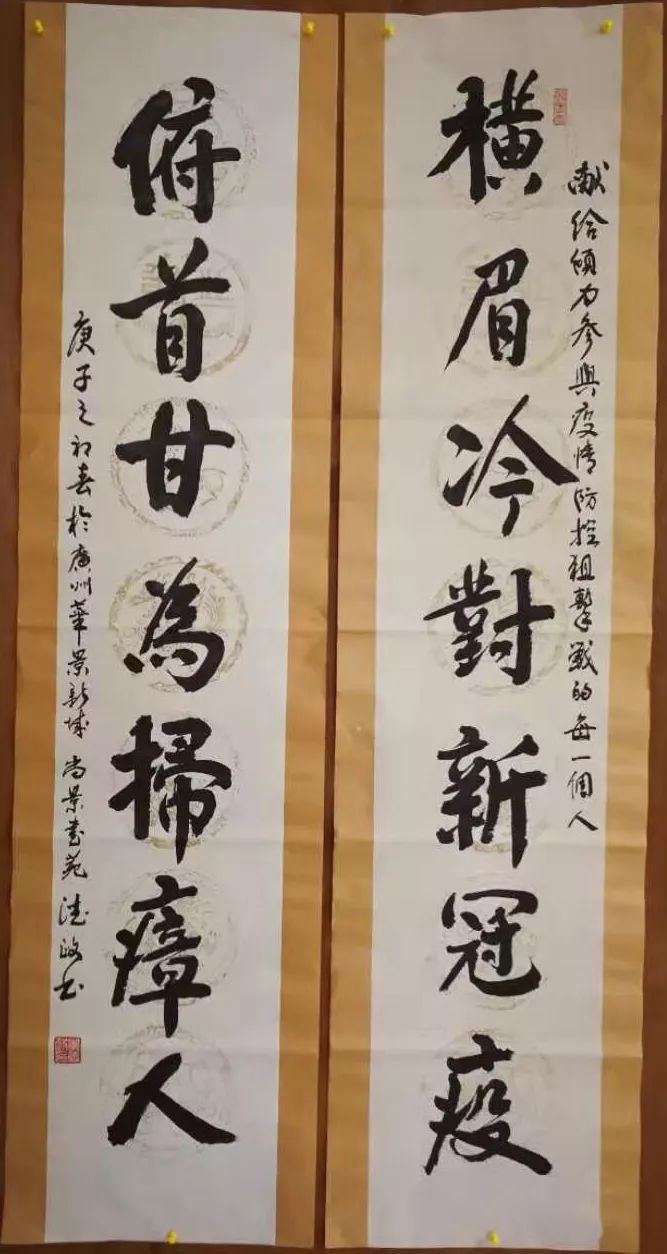 橫眉冷對新冠疫
献给倾力参與疫情防控狙擊戰的每一個人
俯首甘為掃瘴人
庚子之初春於廣州華景新城 尚景書苑 德政書